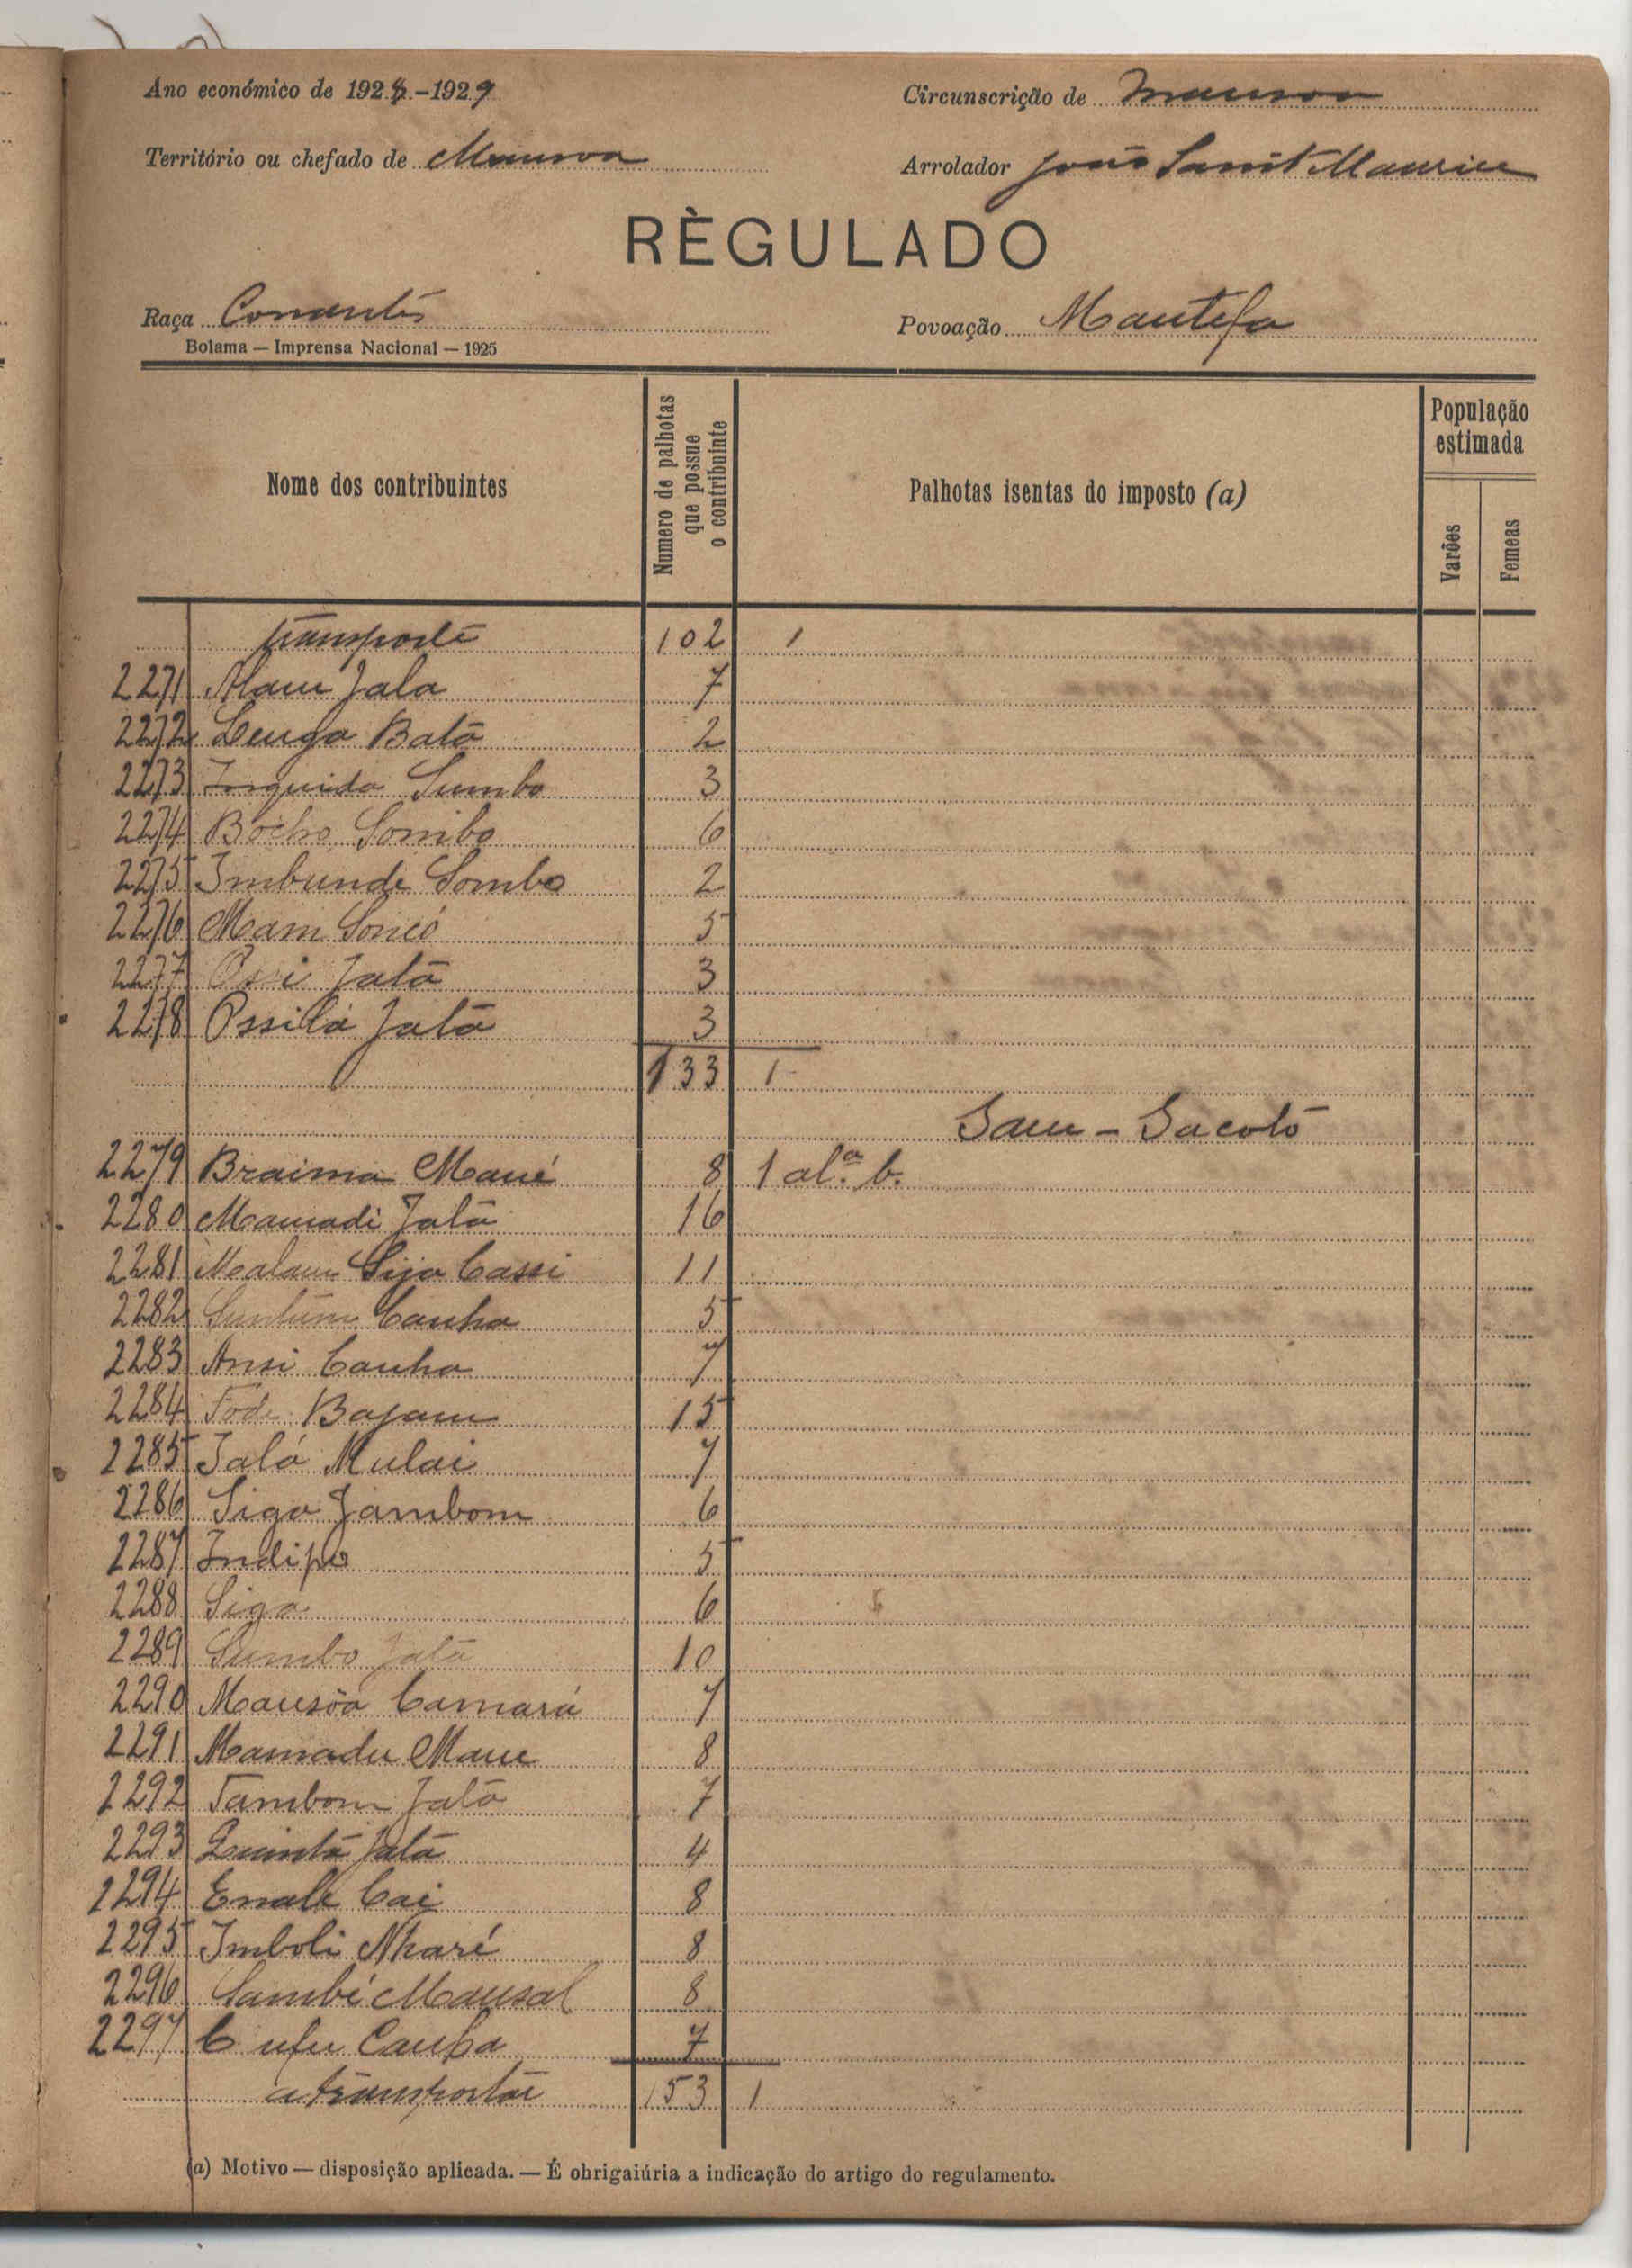 Ano económico de 1928-1929
Circunscrição de Mansoa
Território ou chefado de Mansoa
Arrolador João Sanit Maurice
RÈGULADO
Raça
Povoação Mantefa
Bolama — Imprensa Nacional — 1925
Nome dos contribuintes
Numero de palhotas que possue o contribuinte
Palhotas isentas do imposto (a)
População estimada
Varões
Femeas
transporte 102 1
2271 Alau Jala 7
2272 Lenga Batã 2
2273 Inquida Sumbo 3
2274 Bocho Sombo 6
2275 Imbunde Sombo 2
2276 Mam Soncó 5
2277 Jatã 3
2278 Ossilá Jatã 3
133 1
Sam - Sacotó
2279 Braima Mané 8 1 al.ª b.
2280 Mamadi Jatã 16
2281 Malam Sijo Cassi 11
2282 Suntum Canha 5
2283 Ansi Canha 7
2284 Fode Bajam 15
2285 Jaló Mulai 7
2286 Siga Jambom 6
2287 Indipo 5
2288 Siga 6
2289 Sumbo Jatã 10
2290 Mansõa Camará 7
2291 Mamadu Mane 8
2292 Tambom Jatã 7
2293 Quintã Jatã 4
2294 Enale Cai 8
2295 Imboli Nharé 8
2296 Sambé Mansal 8
2297 Cufu Canha 7
a transportar 153 1
(a) Motivo — disposição aplicada. — É obrigaiúria a indicação do artigo do regulamento.